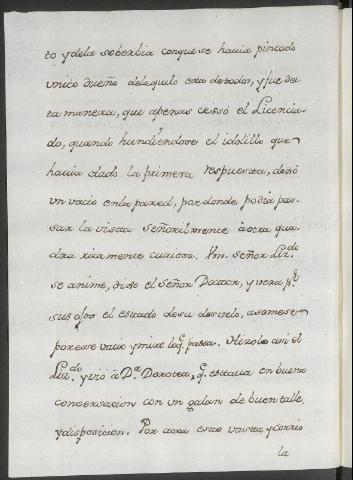 to y dela soberbia conque se hauia pintado
unico dueño delo que lo era de todos, y fue de
ta manera, que apenas cessó el Licencia-
do, quando hundiendose el idolillo que
hauia dado la primera respuesta, dexó
un vacio enla pared, por donde podia pas-
sar la vista señorilmente à otra qua-
dra ricamente curiosa. Vm. señor Liz.do
se anime, dixo el señor Doctor, y vera p.r
sus ojos el estado de su desvelo, asomese
por esse vacio y mire lo q. passa. Hizolo assi el
Liz.do y vió a D.a Dorotea, q. estaua en buena
conversacion con un galan de buen talle,
y disposicion. Por otra esto vista y corrio
la